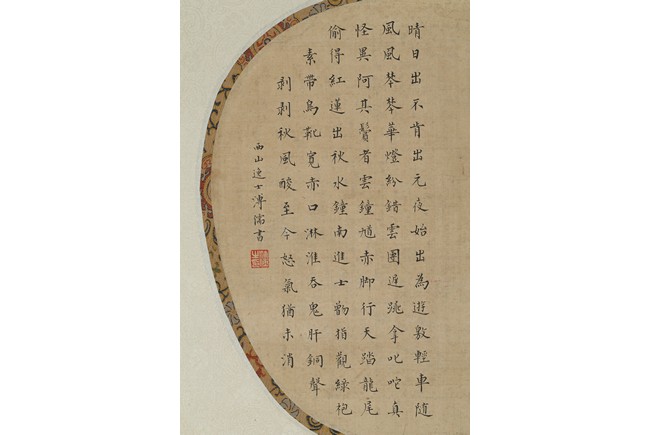 晴日出不肯出元夜始出為遊敖輕車隨
風風棽棽華燈紛錯雲團跳拿叱咤真
怪異阿其者雲鐘馗赤脚行天踏龍尾
偷得紅蓮出秋水鐘南進士指觀綠袍
素帶烏靴寬赤口淋淮吞鬼肝銅聲
剥剥秋風酸至今怒氣猶未消
西山逸士溥儒書